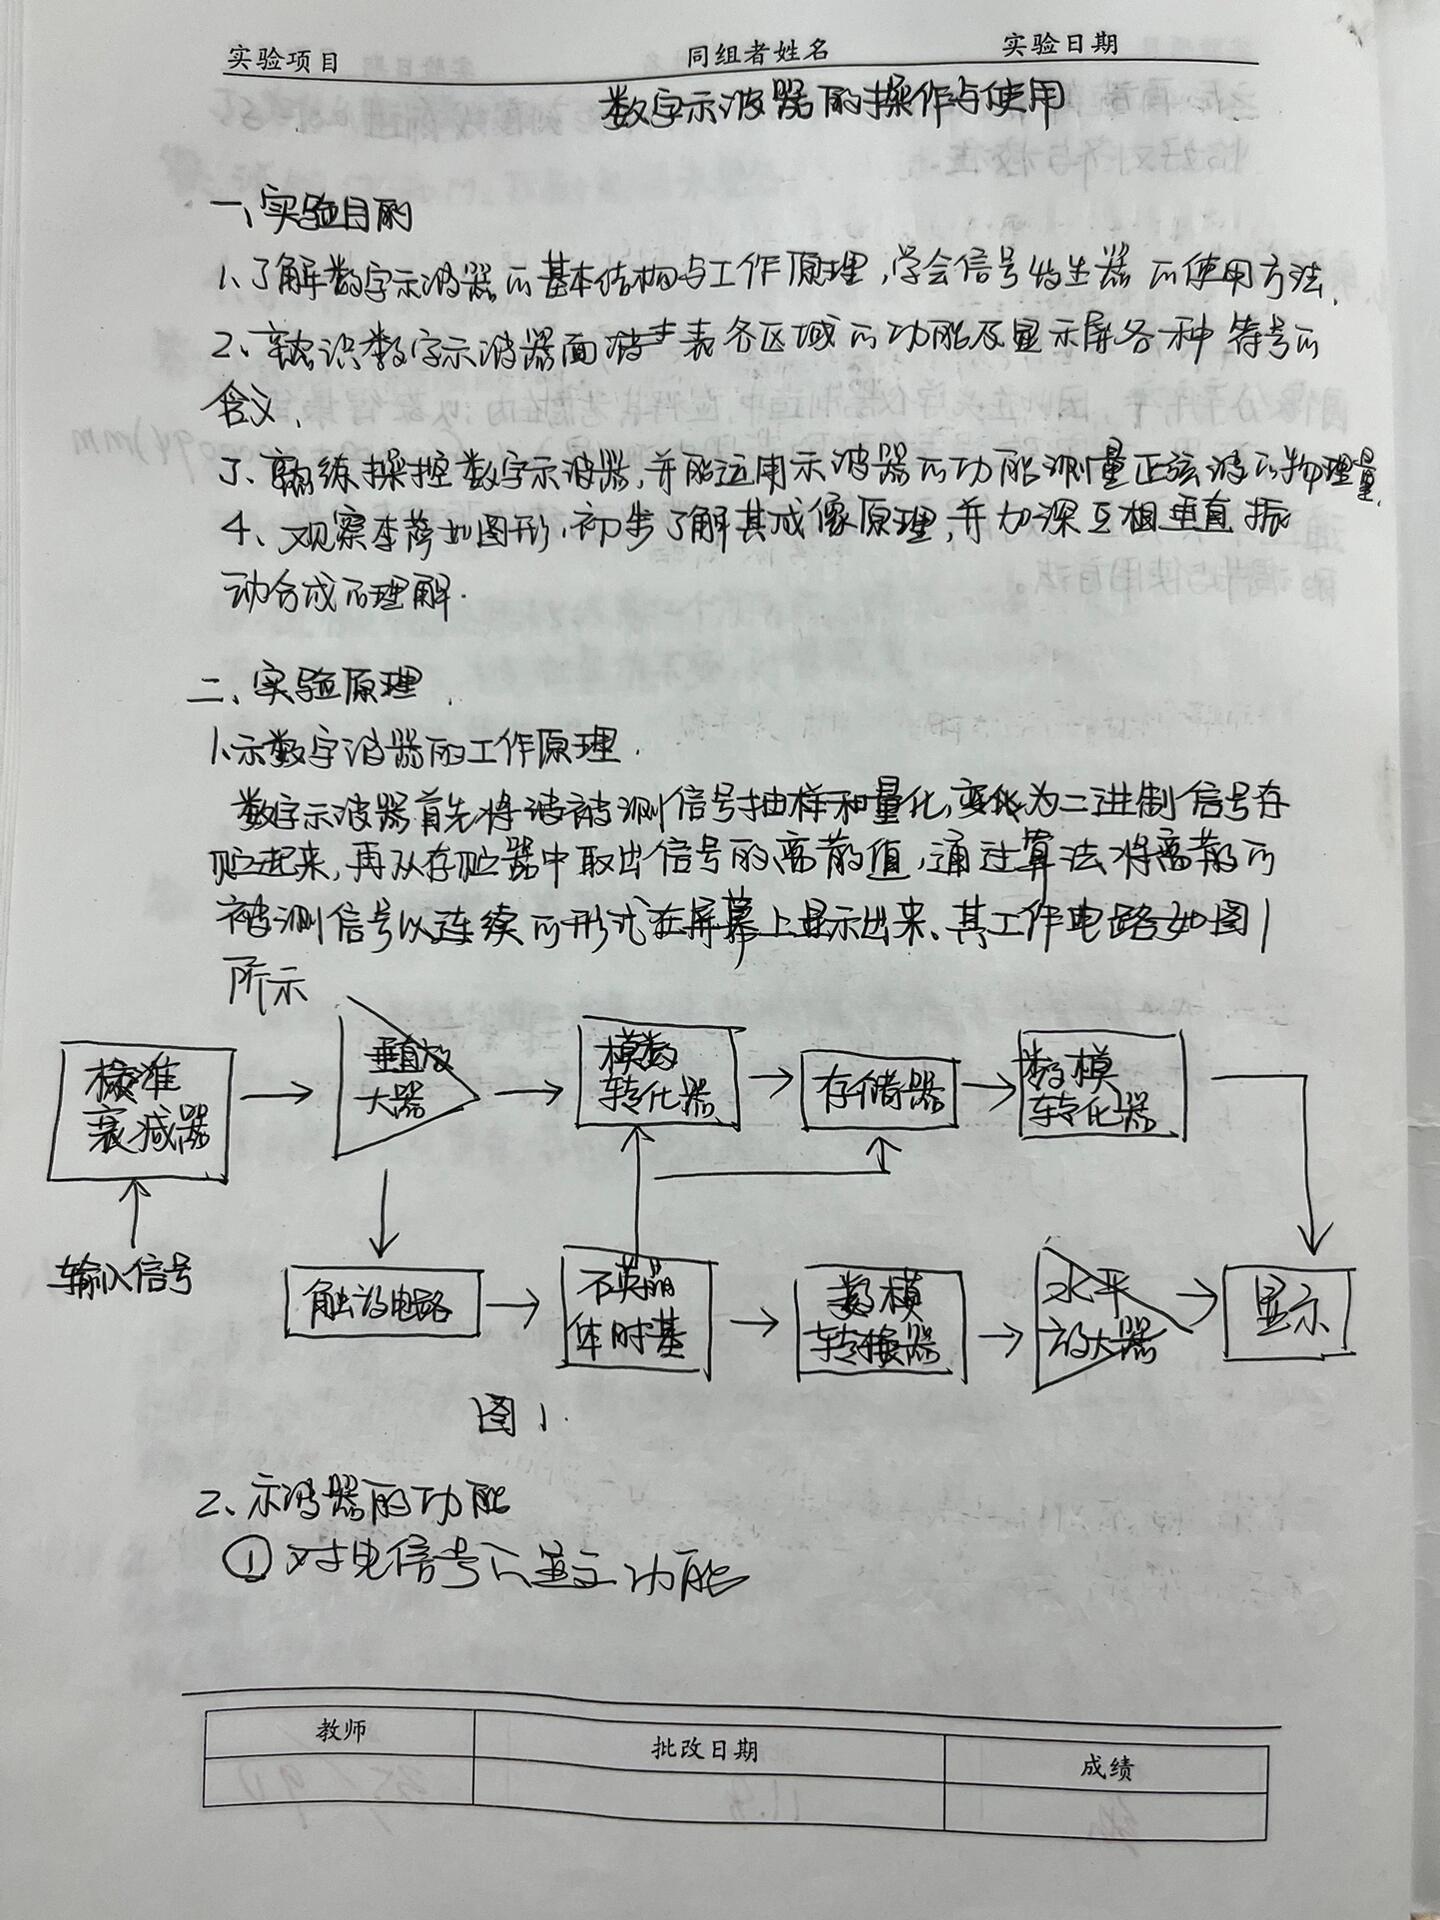 实验项目 同组者姓名 实验日期
数字示波器的操作与使用
一、实验目的
1、了解数字示波器的基本结构与工作原理,学会信号发生器的使用方法.
2、熟识数字示波器面波丰表各区域的功能及显示屏各种符号的
含义、
3、熟练操控数字示波器,并能运用示波器的功能测量正弦波的物理量.
4、观察李萨如图形,初步了解其成像原理,并加深互相垂直振
动合成的理解.
二、实验原理.
1、示数字波器的工作原理.
数字示波器首先将波被测信号抽样和量化,变化为二进制信号存
贮起来,再从存贮器中取出信号的离散值,通过算法将离散的
被测信号以连续的形式在屏幕上显示出来、其工作电路如图1
所示
校准
衰减器
垂直放
大器
模数
转化器
存储器
数模
转化器
输入信号
触发电路
石英晶
体时基
数模
转换器
水平
放大器
显示
图1.
2、示波器的功能
①对电信号 功能
教师 批改日期 成绩